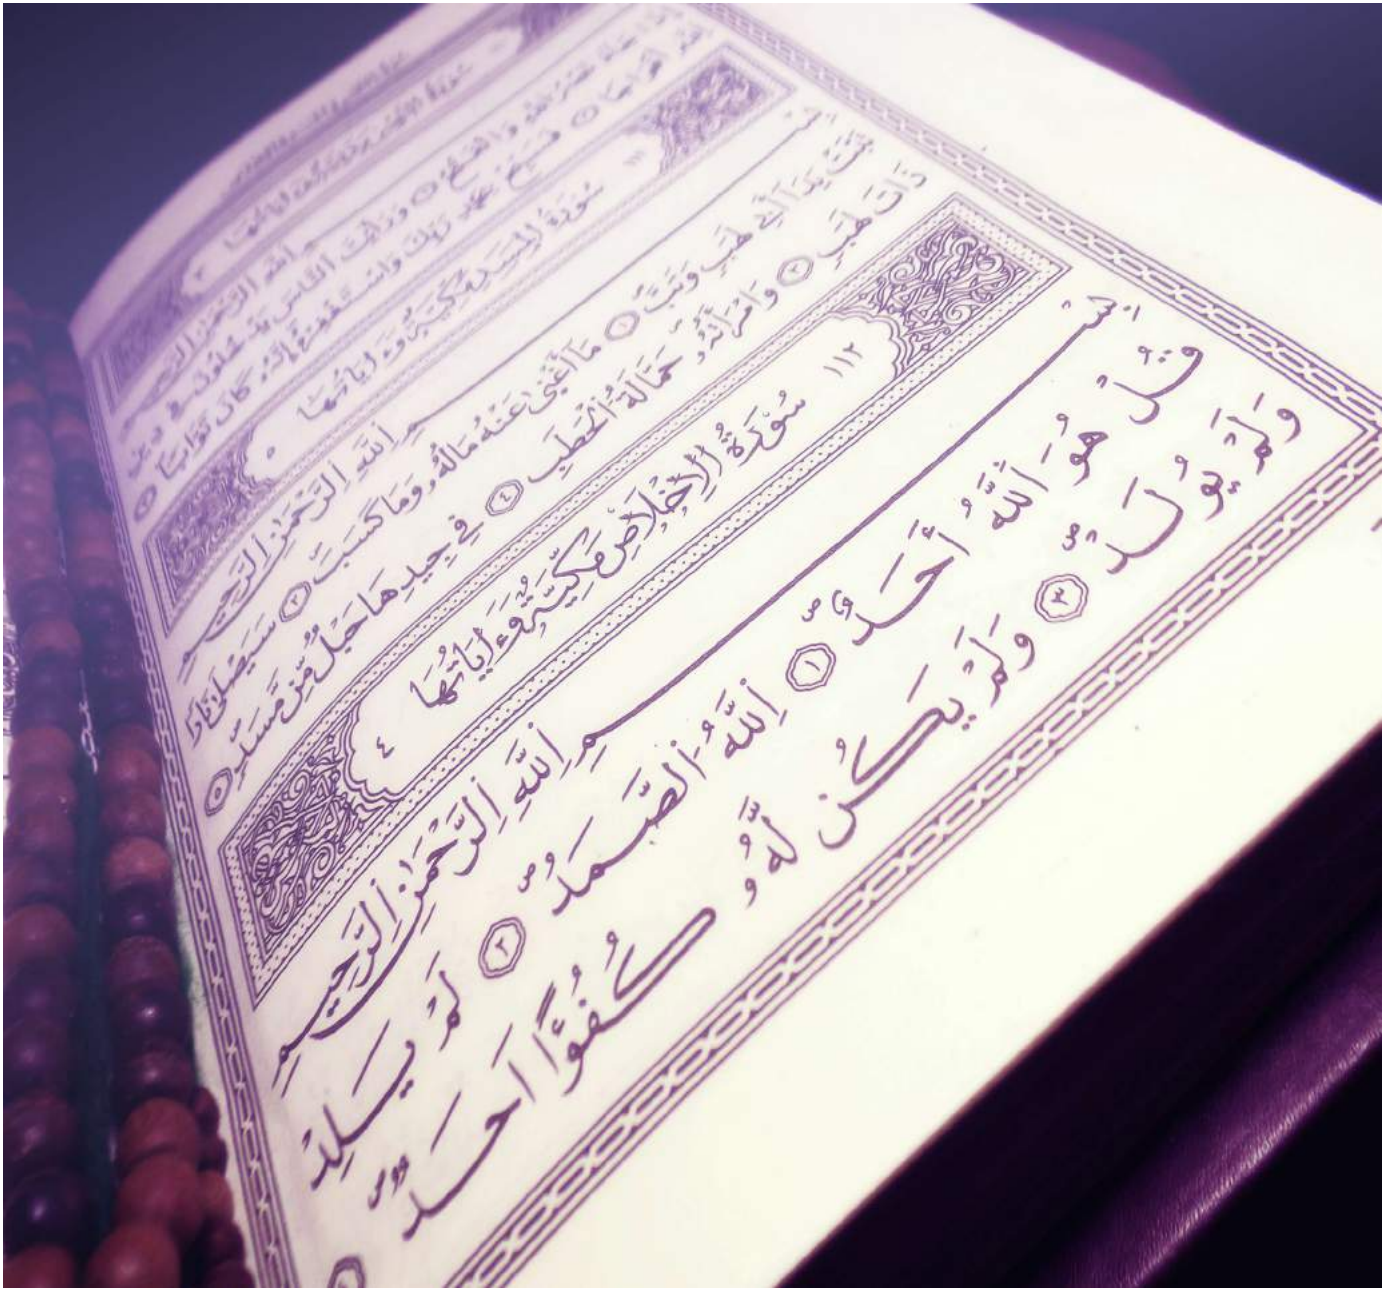 سُورَةُ
إِذَا جَاءَ نَصْرُ اللّٰهِ وَالْفَتْحُ ١ وَرَاَيْتَ النَّاسَ يَدْخُلُونَ فِي دِينِ
اللّٰهِ اَفْوَاجًا ٢ فَسَبِّحْ بِحَمْدِ رَبِّكَ وَاسْتَغْفِرْهُ اِنَّهُ كَانَ تَوَّابًا ٣
١١١ سُورَةُ الْمَسَدِ مَكِّيَّةٌ وَءَايَاتُهَا ٥
بِسْمِ اللّٰهِ الرَّحْمٰنِ الرَّحِيمِ
تَبَّتْ يَدَا أَبِي لَهَبٍ وَتَبَّ ١ مَا أَغْنٰى عَنْهُ مَالُهُ وَمَا كَسَبَ ٢ سَيَصْلٰى نَارًا
ذَاتَ لَهَبٍ ٣ وَامْرَأَتُهُ حَمَّالَةَ الْحَطَبِ ٤ فِي جِيدِهَا حَبْلٌ مِّن مَّسَدٍ ٥
١١٢ سُورَةُ الْاِخْلَاصِ مَكِّيَّةٌ وَءَايَاتُهَا ٤
بِسْمِ اللّٰهِ الرَّحْمٰنِ الرَّحِيمِ
قُلْ هُوَ اللّٰهُ أَحَدٌ ١ اَللّٰهُ الصَّمَدُ ٢ لَمْ يَلِدْ
وَلَمْ يُولَدْ ٣ وَلَمْ يَكُن لَهُ كُفُوًا اَحَدٌ